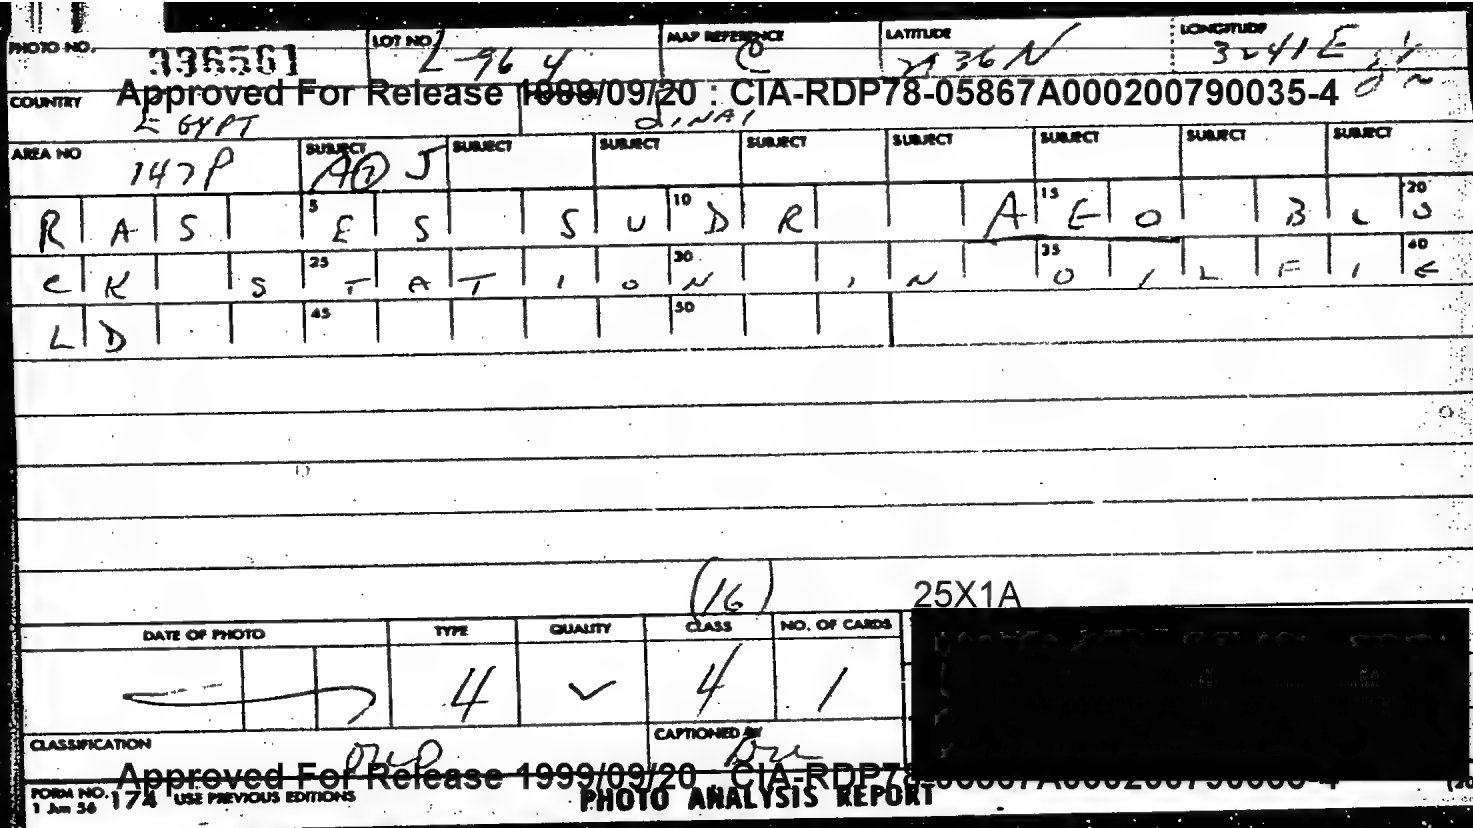 PHOTO NO. 336561 LOT NO. L-964 MAP REFERENCE C LATITUDE 2936N LONGITUDE 3241E
Approved For Release 1999/09/20 : CIA-RDP78-05867A000200790035-4
COUNTRY EGYPT SINAI
AREA NO 147P SUBJECT J SUBJECT SUBJECT SUBJECT SUBJECT SUBJECT SUBJECT SUBJECT
RAS 5 ES SU 10 DR A 15 EO BL 20 O
CK S 25 TATIO 30 N IN 35 OILFI 40 E
LD 45 50
(16)
25X1A
DATE OF PHOTO TYPE QUALITY CLASS NO. OF CARDS
4 ✓ 4 1
CLASSIFICATION CAPTIONED BY
Approved For Release 1999/09/20 : CIA-RDP78-05867A000200790035-4
FORM NO. 174 USE PREVIOUS EDITIONS PHOTO ANALYSIS REPORT
1 Jun 56